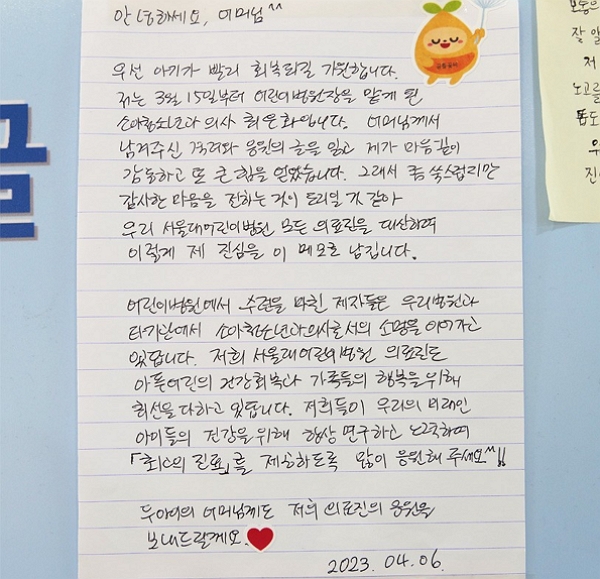 안녕하세요, 어머님^^
우선 아기가 빨리 회복되길 기원합니다.
저는 3월 15일부터 어린이병원장을 맡게 된
소아청소년과 의사 최은화입니다. 어머님께서
남겨주신 격려와 응원의 글을 읽고 제가 마음깊이
감동하고 또 큰 힘을 얻었습니다. 그래서 좀 쑥스럽지만
감사한 마음을 전하는 것이 도리일 것 같아
우리 서울대어린이병원 모든 의료진을 대신하여
이렇게 제 진심을 이 메모로 남깁니다.
어린이병원에서 수련을 마친 제자들은 우리병원과
타기관에서 소아청소년과의사로서의 소명을 이어가고
있답니다. 저희 서울대어린이병원 의료진도
아픈어린이 건강회복과 가족들의 행복을 위해
최선을 다하고 있답니다. 저희들이 우리의 미래인
아이들의 건강을 위해 항상 연구하고 노력하여
「최고의 진료」를 제공하도록 많이 응원해 주세요^^!!
두아이의 어머님께도 저희 의료진의 응원을
보내드릴게요.
2023. 04. 06.
모든의
잘
저
노고를
우
진